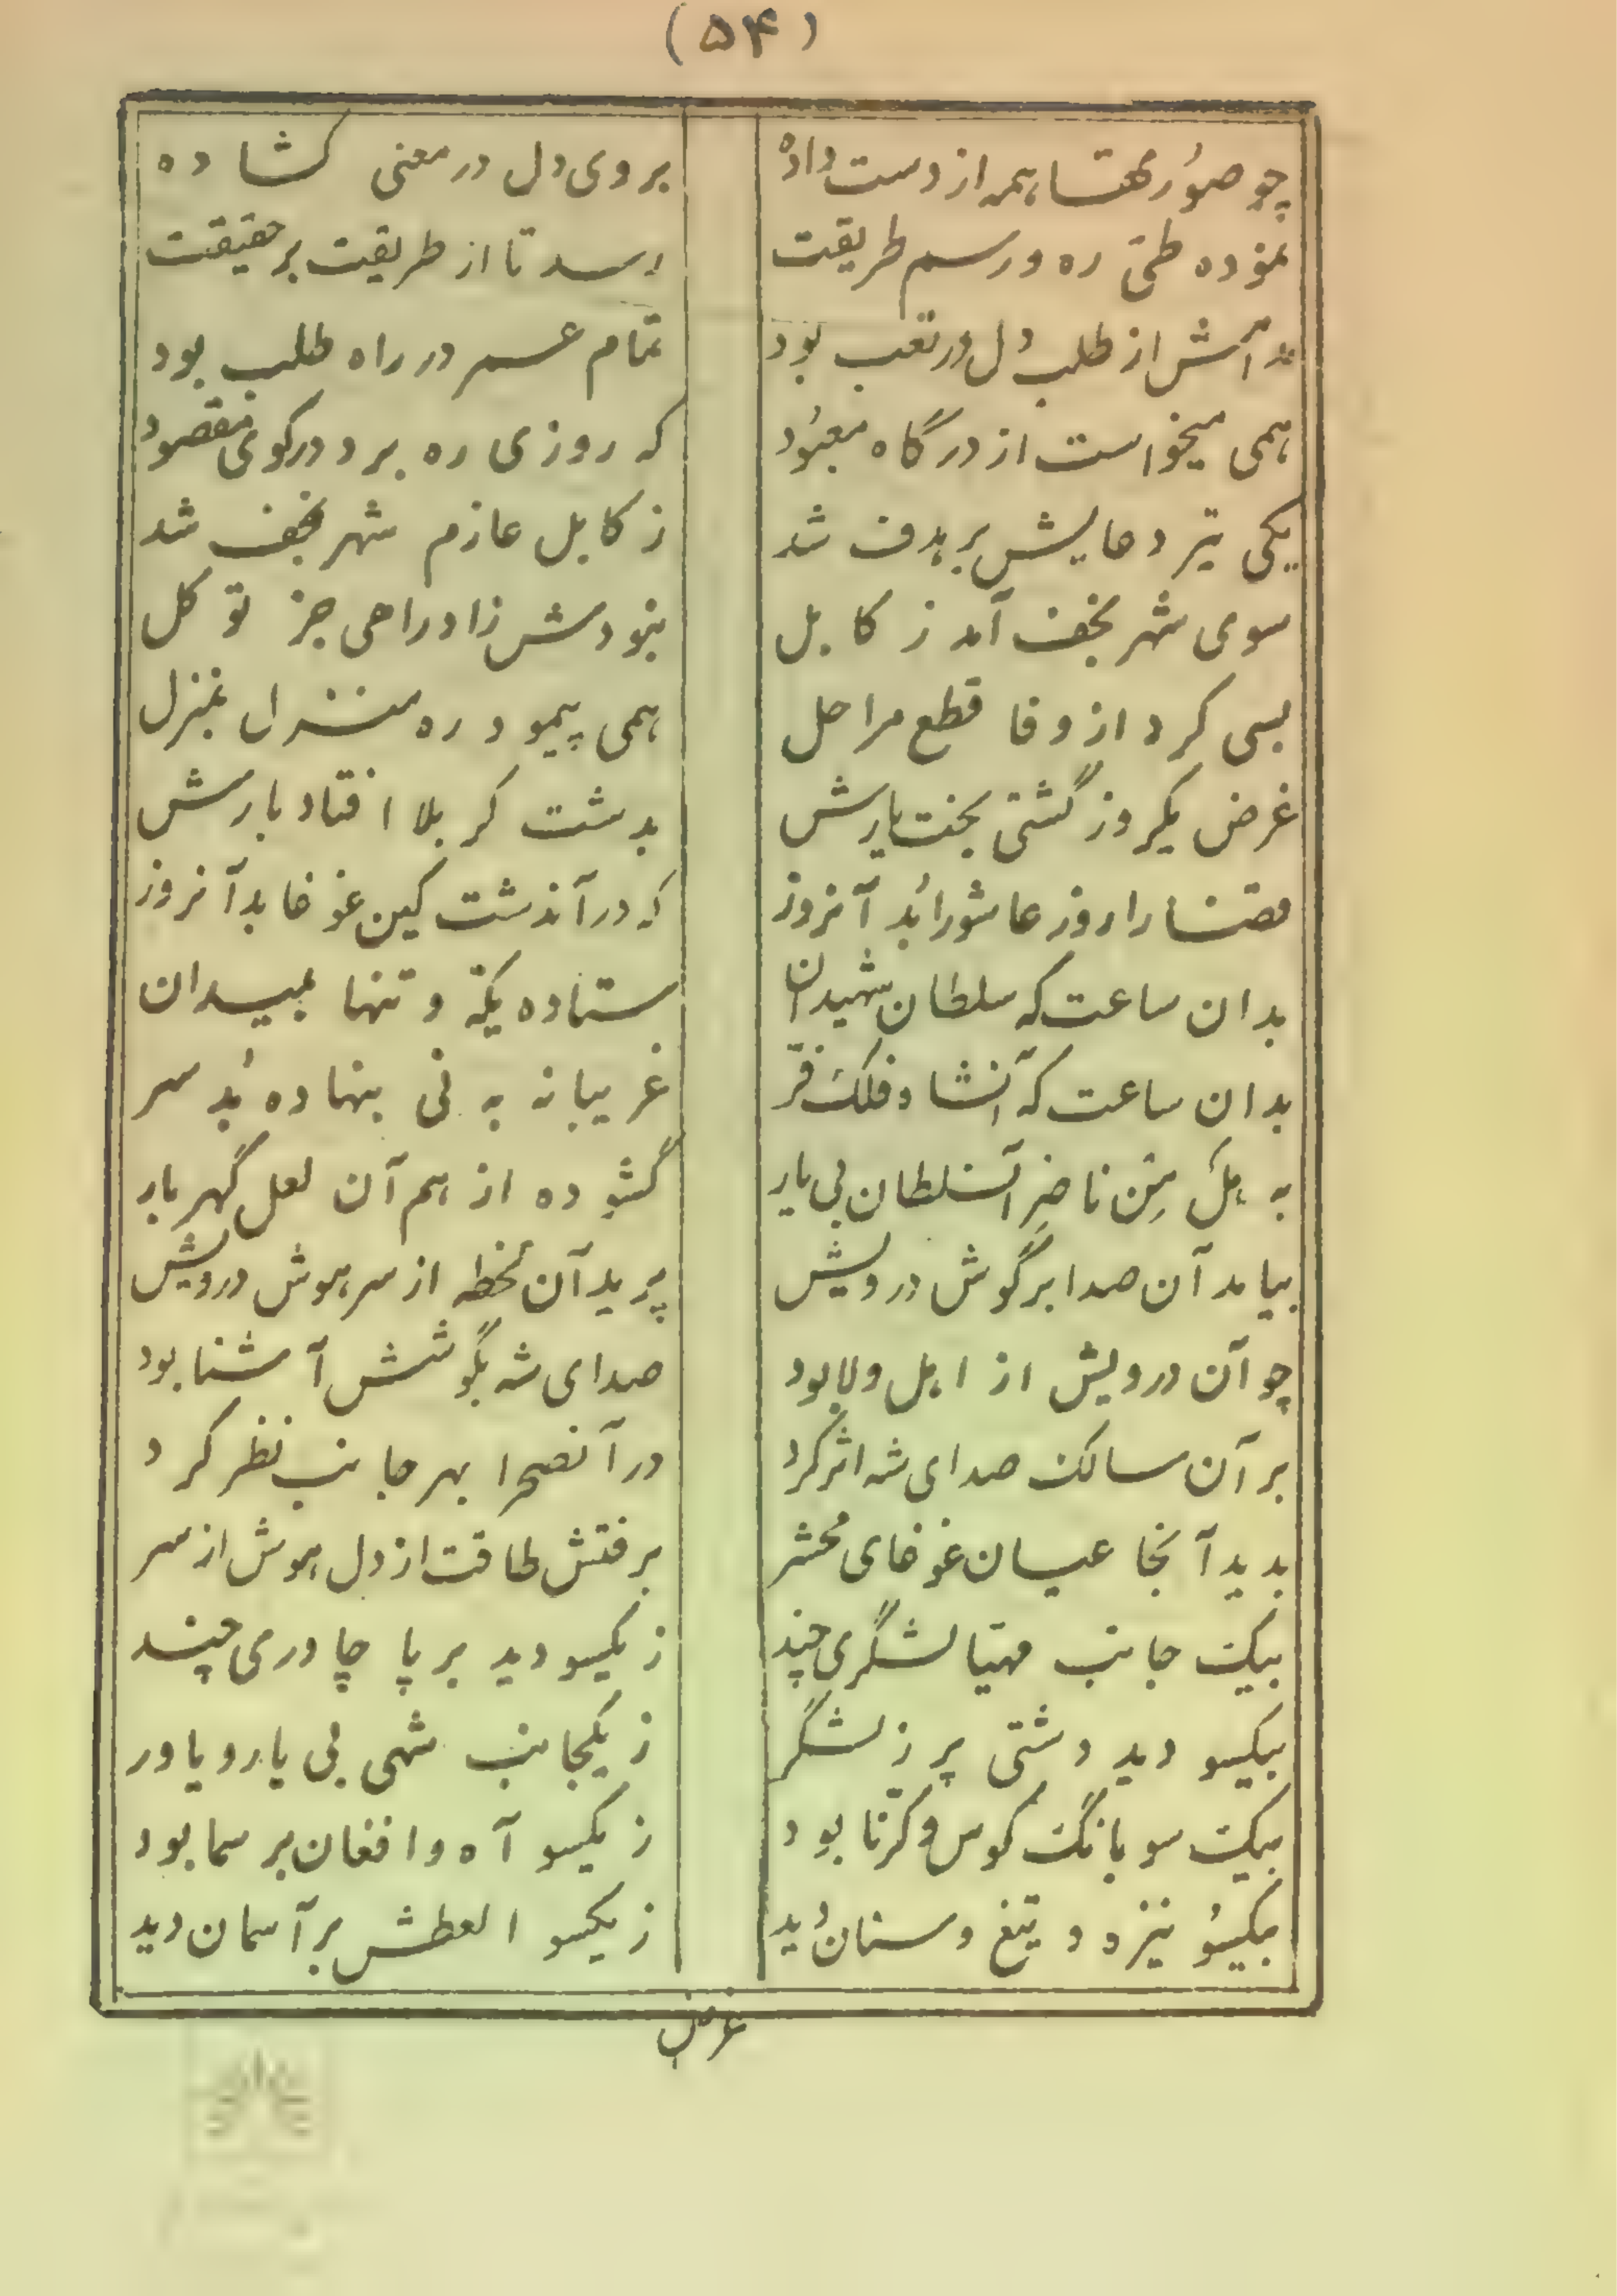 (۵۴)
چو صورتها همه از دست داده بروی دل در معنی کشاده
نموده طیّ ره و رسم طریقت رسد تا از طریقت بر حقیقت
مدامش از طلب دل در تعب بود تمام عمر در راه طلب بود
همی میخواست از درگاه معبُود که روزی ره برد در کوی مقصود
یکی تیر دعایش بر هدف شد ز کابل عازم شهر نجف شد
سوی شهر نجف آمد ز کابل نبودش زاد راهی جز توکل
بسی کرد از وفا قطع مراحل همی پیمود ره منزل بمنزل
غرض یکروز گشتی بخت یارش بدشت کربلا افتاد بارش
قضا را روز عاشورا بُد آنروز که در آندشت کین غوغا بد آنروز
بدان ساعت که سلطان شهیدان ستاده یکّه و تنها بمیدان
بدان ساعت که آنشاه فلک فرّ غریبانه به نی بنهاده بُد سر
به هَل مِن ناصرِ آنسلطان بی یار گشوده از هم آن لعل گهربار
بیامد آن صدا بر گوش درویش پرید آن لحظه از سر هوش درویش
چو آن درویش از اهل ولا بود صدای شه بگوشش آشنا بود
بر آن سالک صدای شه اثر کرد در آنصحرا بهر جانب نظر کرد
بدید آنجا عیان غوغای محشر برفتش طاقت از دل هوش از سر
بیک جانب مهیّا لشگری چند ز یکسو دید بر پا چادری چند
بیکسو دید دشتی پر ز لشگر ز یکجانب شهی بی یار و یاور
بیک سو بانگ کوس و کرّنا بود ز یکسو آه و افغان بر سما بود
بیکسُو نیزه و تیغ و سنان دُید ز یکسو العطش بر آسمان دید
غرض